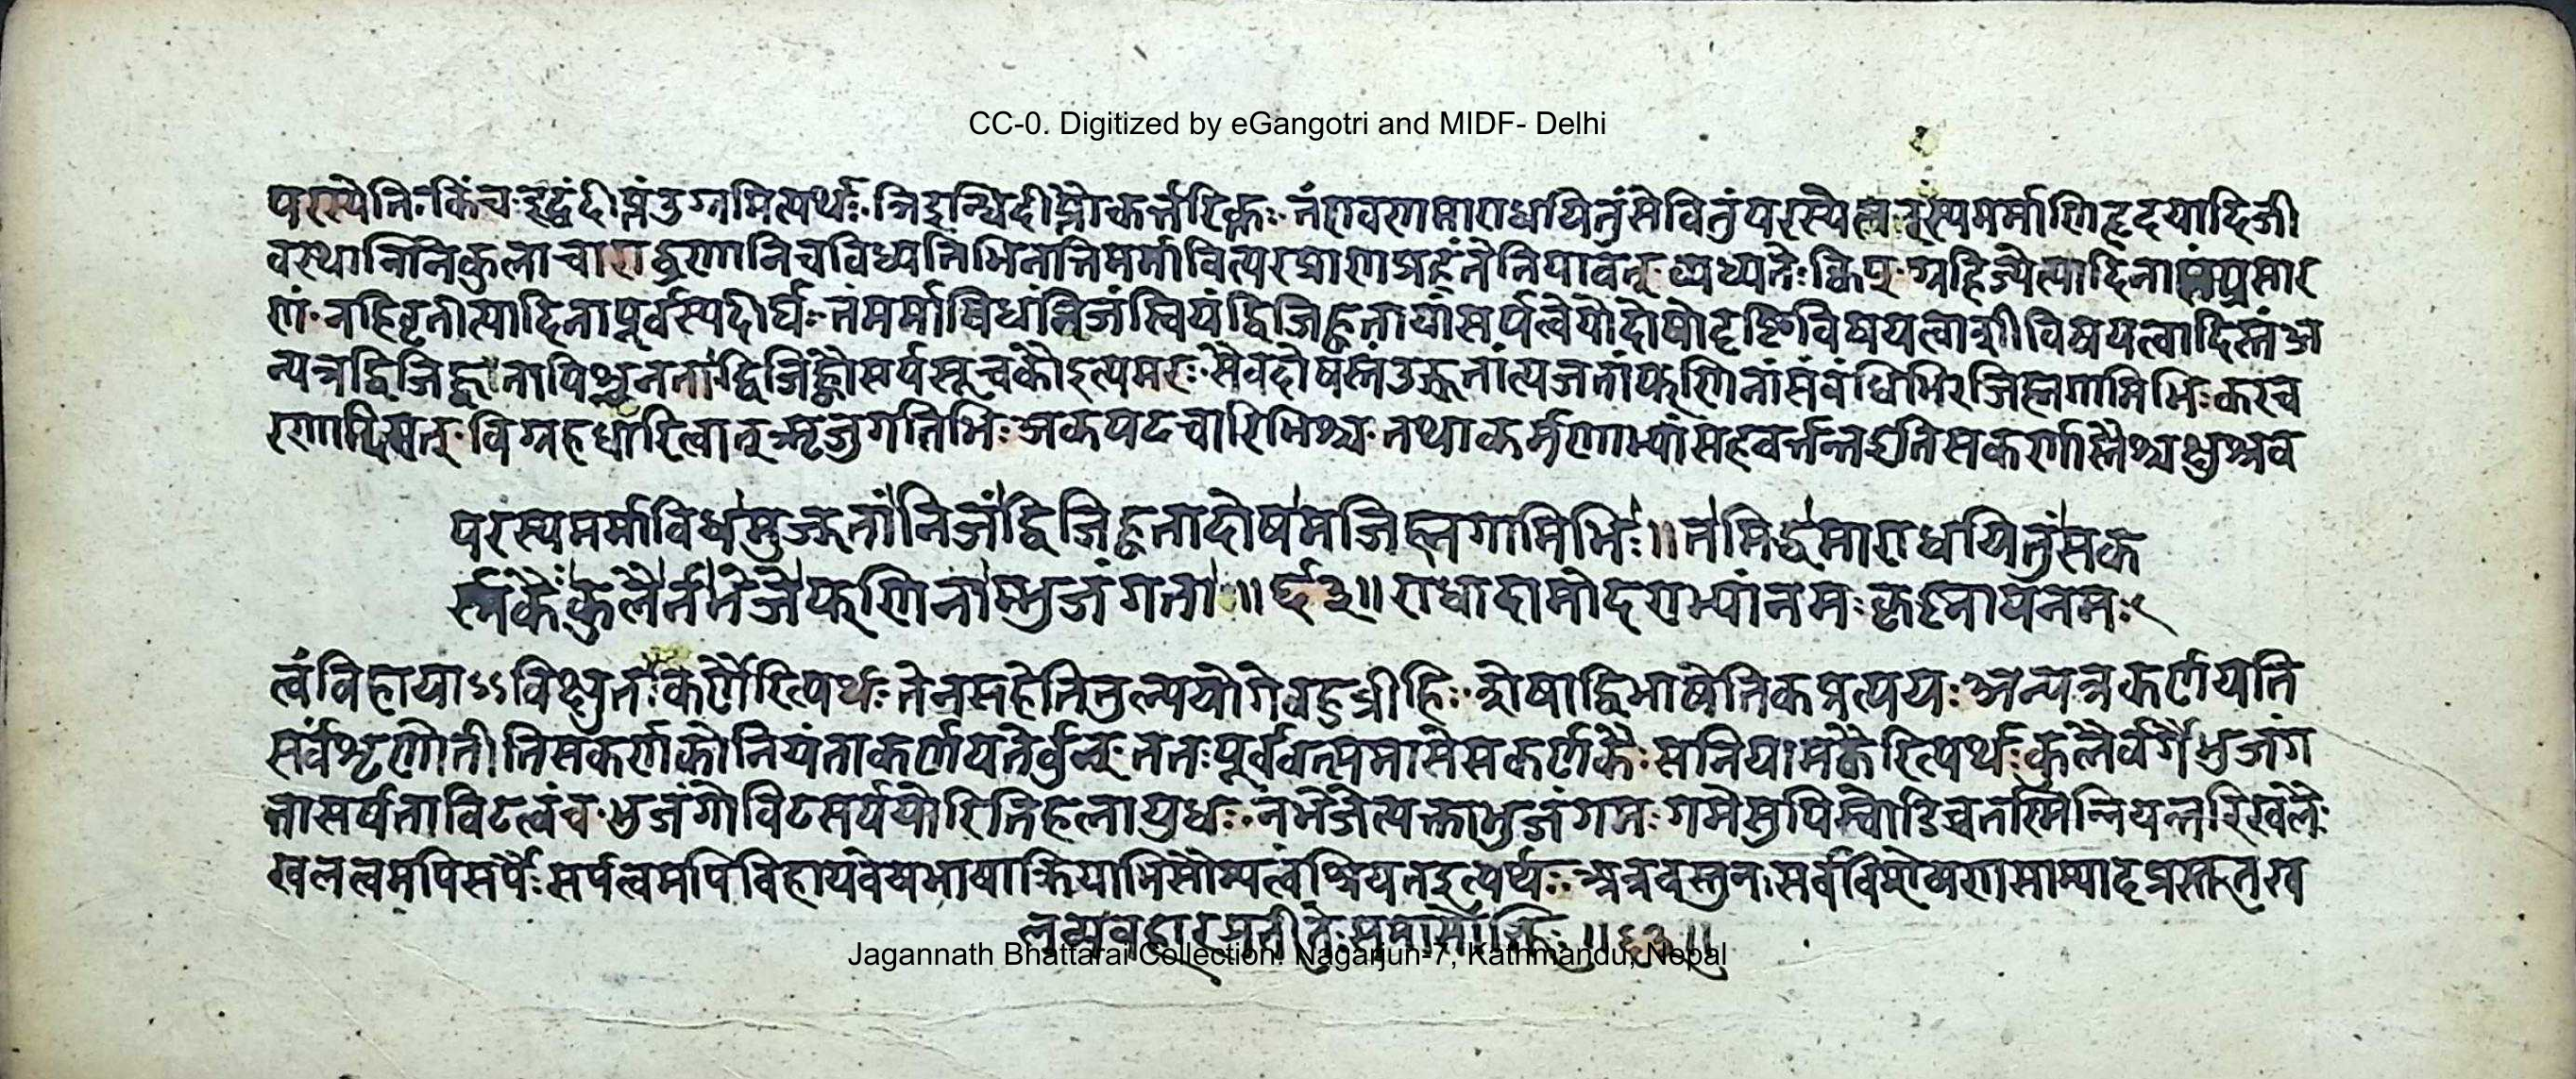 CC-0. Digitized by eGangotri and MIDF- Delhi
परस्येति॰ किंच॰ इद्धं दीप्तं उग्रमित्यर्थः॰ ञिइन्धिदीप्तौ कर्त्तरि क्तः॰ तं रावणमाराधयितुं सेवितुं परस्येत्यन्यस्य मर्माणि हृदयादिजी
वस्थानानि कुलाचाराद्रणानि च विध्यति भिनत्ति मर्मावित् परप्राणाप्रहं तेनेति यावत्॰ व्यध्यतेः क्विप्॰ ग्रहिज्येत्यादिना संप्रसार
णं॰ नहिवृतीत्यादिना पूर्वस्य दीर्घः॰ तं मर्माविधं निजं स्वियं द्विजिह्वतायां सर्पत्वे यो दोषो दृष्टिविषयत्वाशीविषयत्वादिस्तं अ
न्यत्र द्विजिह्वता पिशुनता॰ द्विजिह्वौ सर्पसूचकौ इत्यमरः॰ सैव दोषस्तं उज्झतां त्यजतां फणिनां संबंधिभिरजिह्मगामिभिः करच
रणादिमत्॰ विग्रहधारित्वात् ऋजुगतिभिः अकपटचारिभिश्च॰ तथा कर्णाभ्यां सह वर्त्तन्त इति सकर्णास्तैश्चक्षुश्रव
परस्य मर्माविधमुज्झतां निजं द्विजिह्वतादोषमजिह्मगामिभिः॥ तमिद्धमाराधयितुं सक
र्णकैः कुलैर्न भेजे फणिनां भुजंगता॥६३॥ राधादामोदराभ्यां नमः कृष्णाय नमः
त्वं विहायाऽऽविष्कृतकर्णैरित्यर्थः तेन सहेति तुल्ययोगे बहुव्रीहिः॰ शेषाद्विभाषेति कप्प्रत्ययः अन्यत्र कर्णयति
सर्वं शृणोतीति सकर्णको नियंता कर्णयतेर्ण्वुल्॰ ततः पूर्ववत्समासे सकर्णकैः सनियामकैरित्यर्थः कुलैर्वर्गैर्भुजंग
ता सर्पता विटत्वं च॰ भुजंगो विटसर्पयोरिति हलायुधः॰ न भेजे त्यक्ता भुजंगमः गमे सुपि खचो डिच्च तस्मिन्नियन्तरि खलैः
खलत्वमपि सर्पैः सर्पत्वमपि विहाय वेषभाषाक्रियाभिः सौम्यत्वं श्रियत इत्यर्थः॰ अत्र वस्तुतः सर्वविशेषणसाम्यादप्रस्तुतख
लव्यवहारप्रतीतेः समासोक्तिः॥६३॥
Jagannath Bhattarai Collection. Nagarjun-7, Kathmandu, Nepal